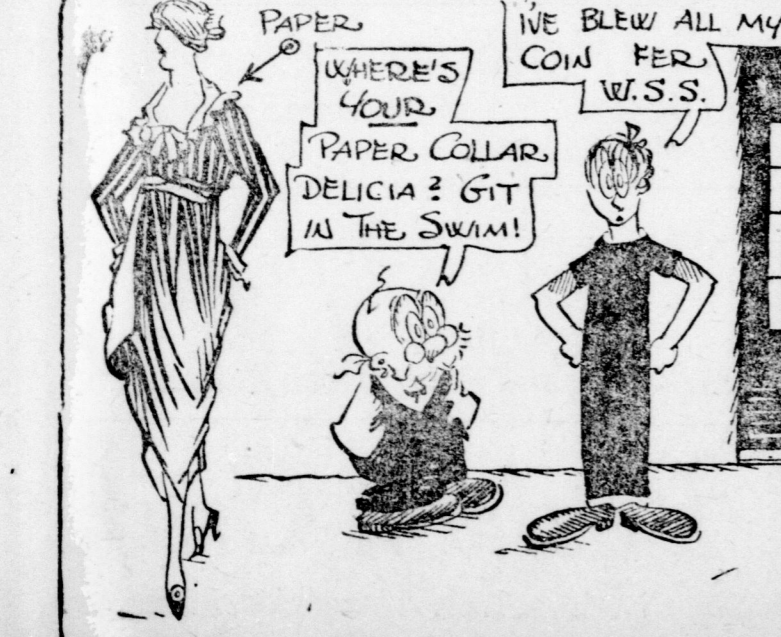 PAPER
WHERE'S
YOUR
PAPER COLLAR
DELICIA? GIT
IN THE SWIM!
I'VE BLEW ALL MY
COIN FER
W.S.S.